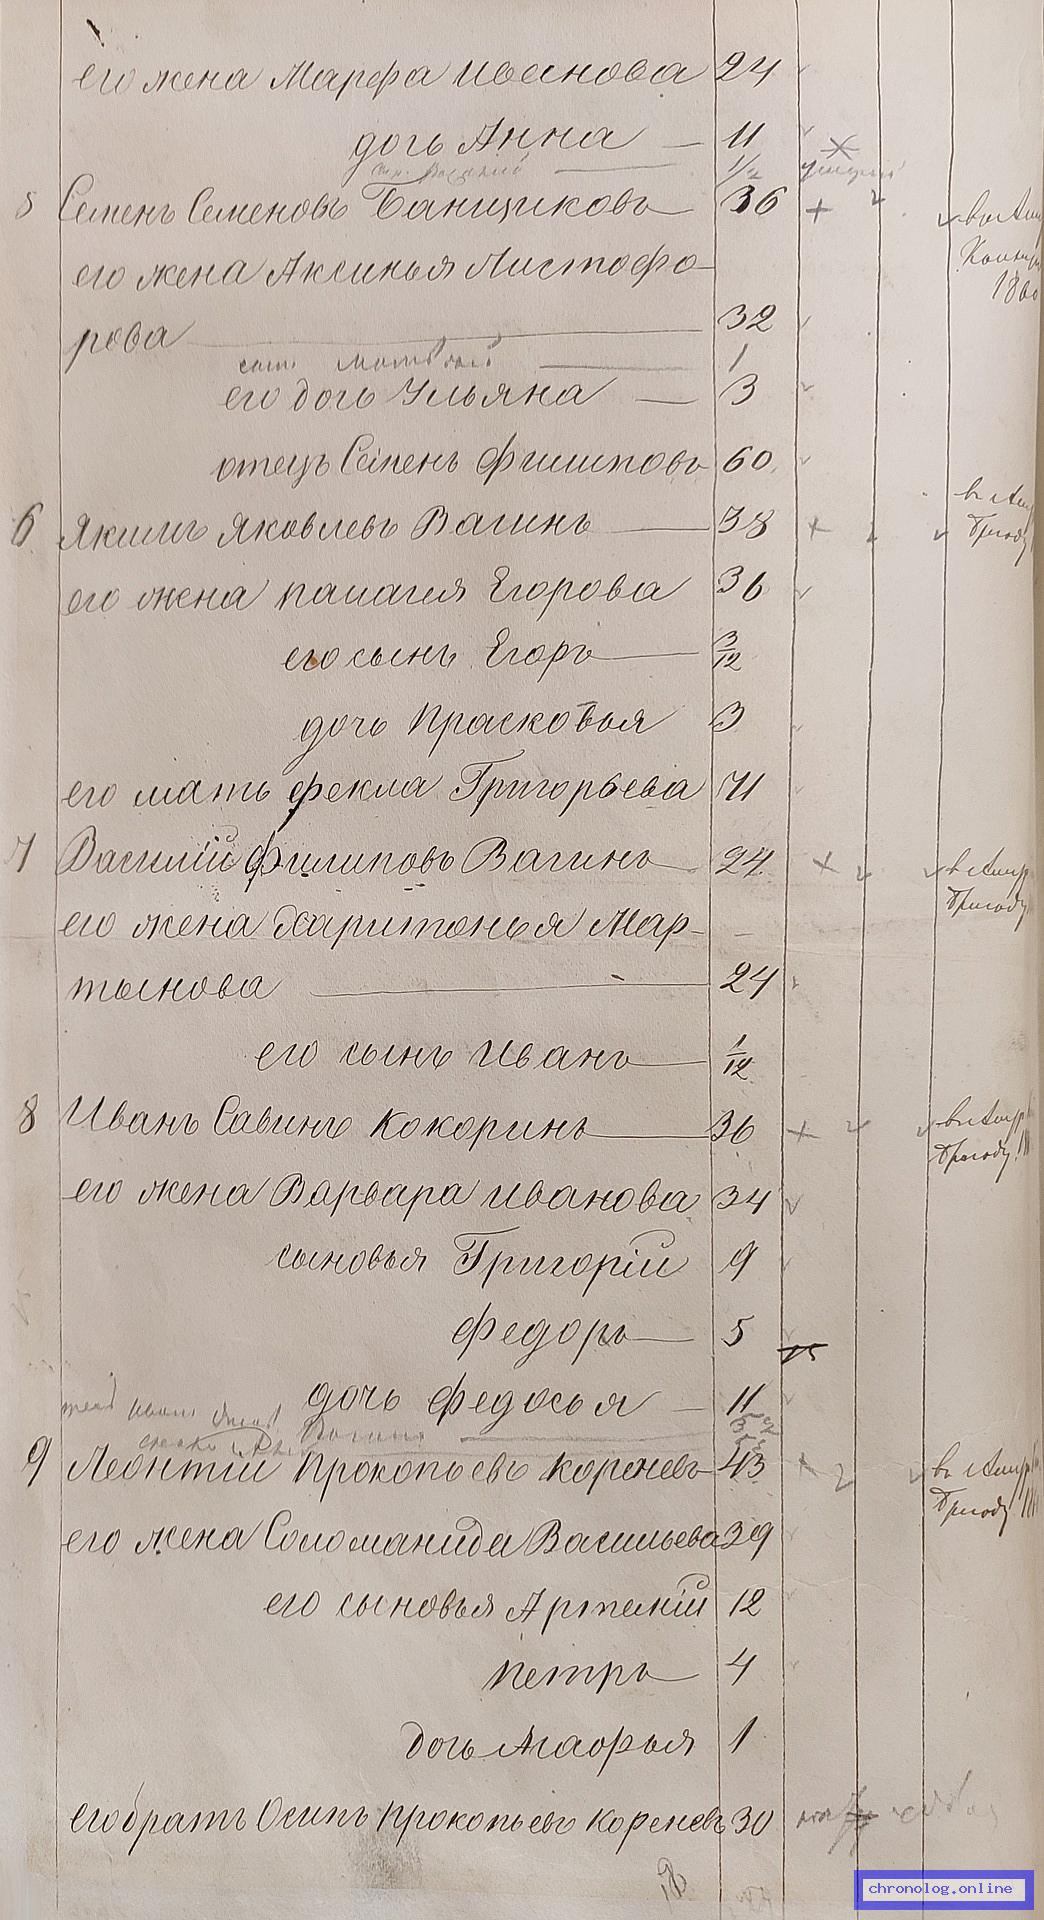 его жена Марфа Иванова 24
дочь Анна — 11
сын Василий 1/2
5 Семенъ Семеновъ Банщиковъ 36
его жена Аксинья Листофо-
рова 32
сынъ 1
его дочь Ульяна — 3
отецъ Семенъ Филиповъ 60
6 Якимъ Яковлевъ Вагинъ 38
его жена Палагея Егорова 36
его сынъ Егоръ 3/12
дочь Прасковья 3
его мать Фекла Григорьева 71
7 Василій Филиповъ Вагинъ 24
его жена Харитонья Мар-
тынова 24
его сынъ Иванъ 1/12
8 Иванъ Савинъ Кокоринъ 36
его жена Варвара Иванова 34
сыновья Григорій 9
Федоръ 5
дочь Федосья — 11
9 Леонтій Прокопьевъ Кореневъ 43
его жена Соломанида Васильева 39
его сыновья Артемій 12
Петръ 4
дочь Агафья 1
его братъ Осипъ Прокопьевъ Кореневъ 30
chronolog.online